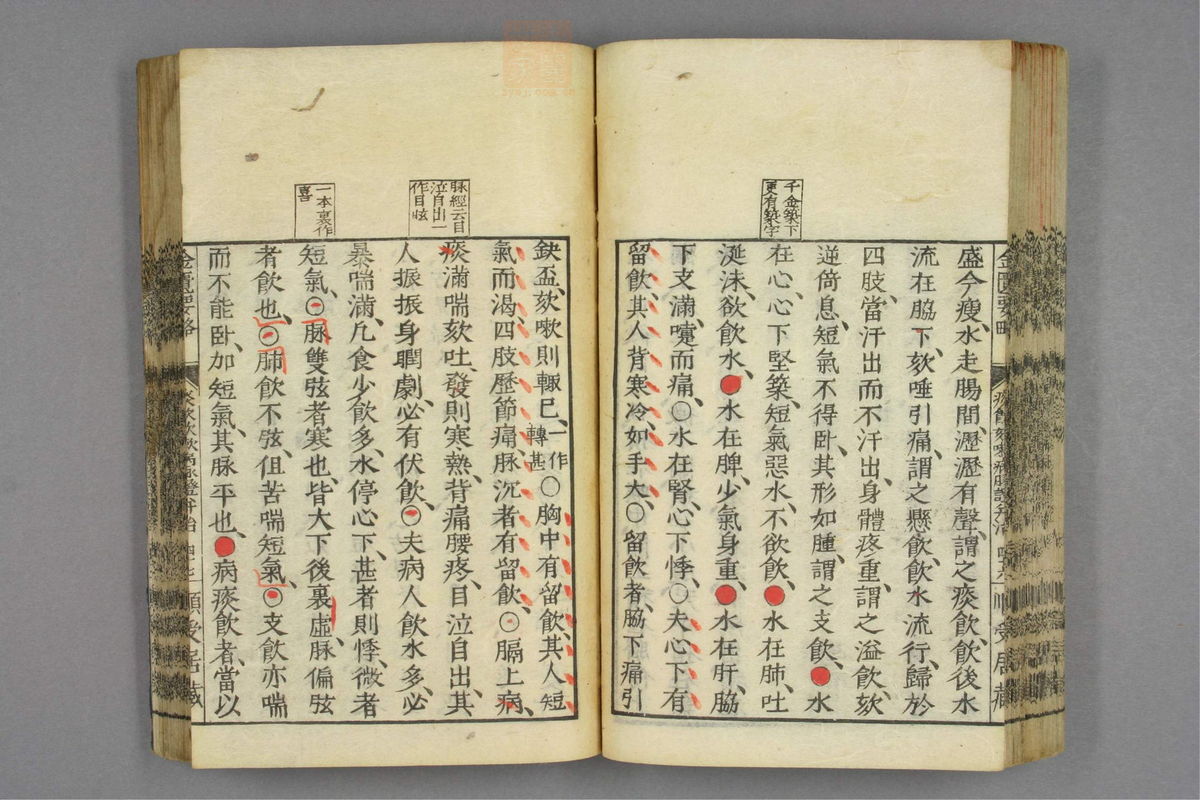 千金築下
更有築字
盛今瘦、水走腸間、瀝瀝有聲、謂之痰飲、飲後水
流在脇下、欬唾引痛、謂之懸飲、飲水流行、歸於
四肢、當汗出而不汗出、身體疼重、謂之溢飲、欬
逆倚息、短氣不得臥、其形如腫、謂之支飲、●水
在心、心下堅築、短氣、惡水、不欲飲、●水在肺、吐
涎沫、欲飲水、●水在脾、少氣身重、●水在肝、脇
下支滿、嚏而痛、○水在腎、心下悸、○夫心下有
留飲、其人背寒冷、如手大、○留飲者、脇下痛引
脉經云目
泣自出一
作目眩
一本裏作
喜
缺盆、欬嗽則輒已、一作
轉甚○胸中有留飲、其人短
氣而渴、四肢歷節痛、脉沉者、有留飲、○膈上病
痰、滿喘欬吐、發則寒熱、背痛腰疼、目泣自出、其
人振振身瞤劇、必有伏飲、○夫病人飲水多、必
暴喘滿、凡食少飲多、水停心下、甚者則悸、微者
短氣、○脉雙弦者寒也、皆大下後裏虛、脉偏弦
者飲也、○肺飲不弦、但苦喘短氣、○支飲亦喘
而不能臥、加短氣、其脉平也、●病痰飲者、當以
金匱要略
順受居藏